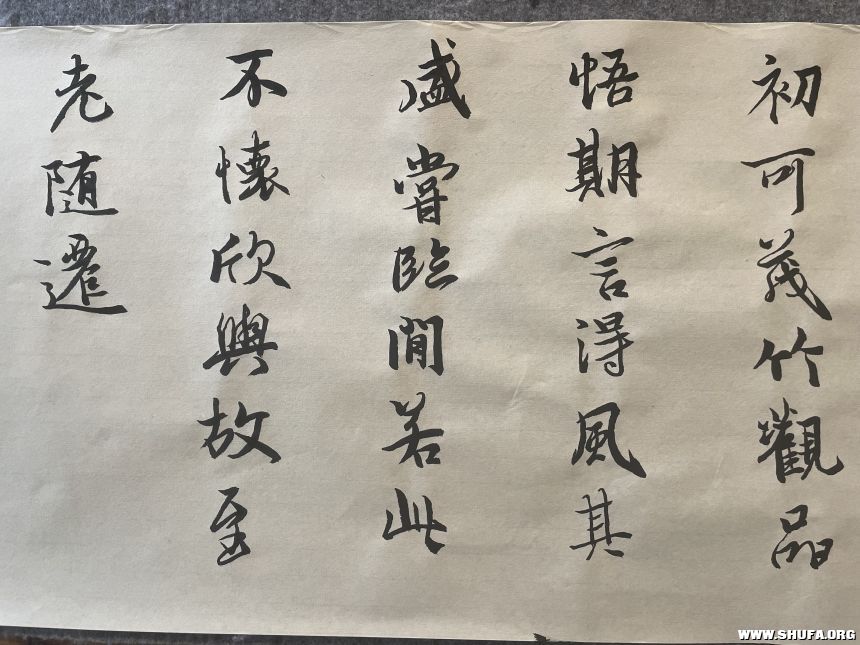 初可茂竹觀品
悟期言得風其
盛嘗臨閒若此
不懷欣興故至
老隨遷
WWW.SHUFA.ORG